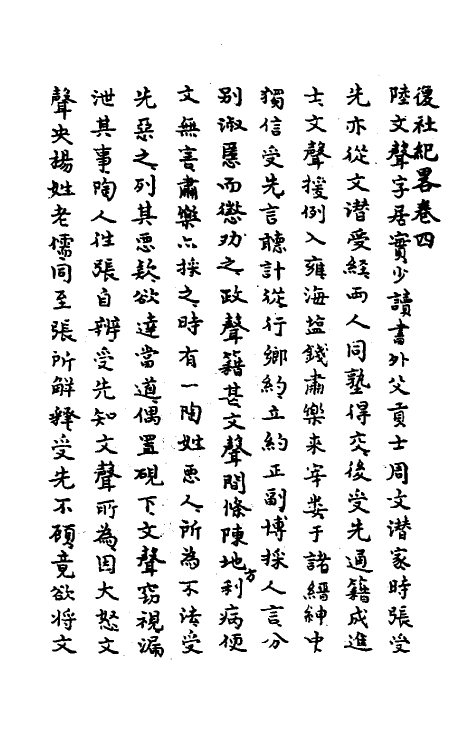 復社紀畧卷四
陸文聲字居實少讀書外父貢士周文潜家時張受
先亦從文潜受經兩人同塾得交後受先通籍成進
士文聲援例入雍海塩錢肅樂来宰婁于諸縉紳中
獨信受先言聽計從行鄉約立約正副博採人言分
别淑慝而懲劝之政聲籍甚文聲間條陳地方利病便
文無害肅樂亦採之時有一陶姓惡人所為不法受
先惡之列其惡款欲達當道偶置硯下文聲窃視漏
泄其事陶人往張自辨受先知文聲所為因大怒文
聲央楊姓老儒同至張所解釋受先不顧竟欲将文